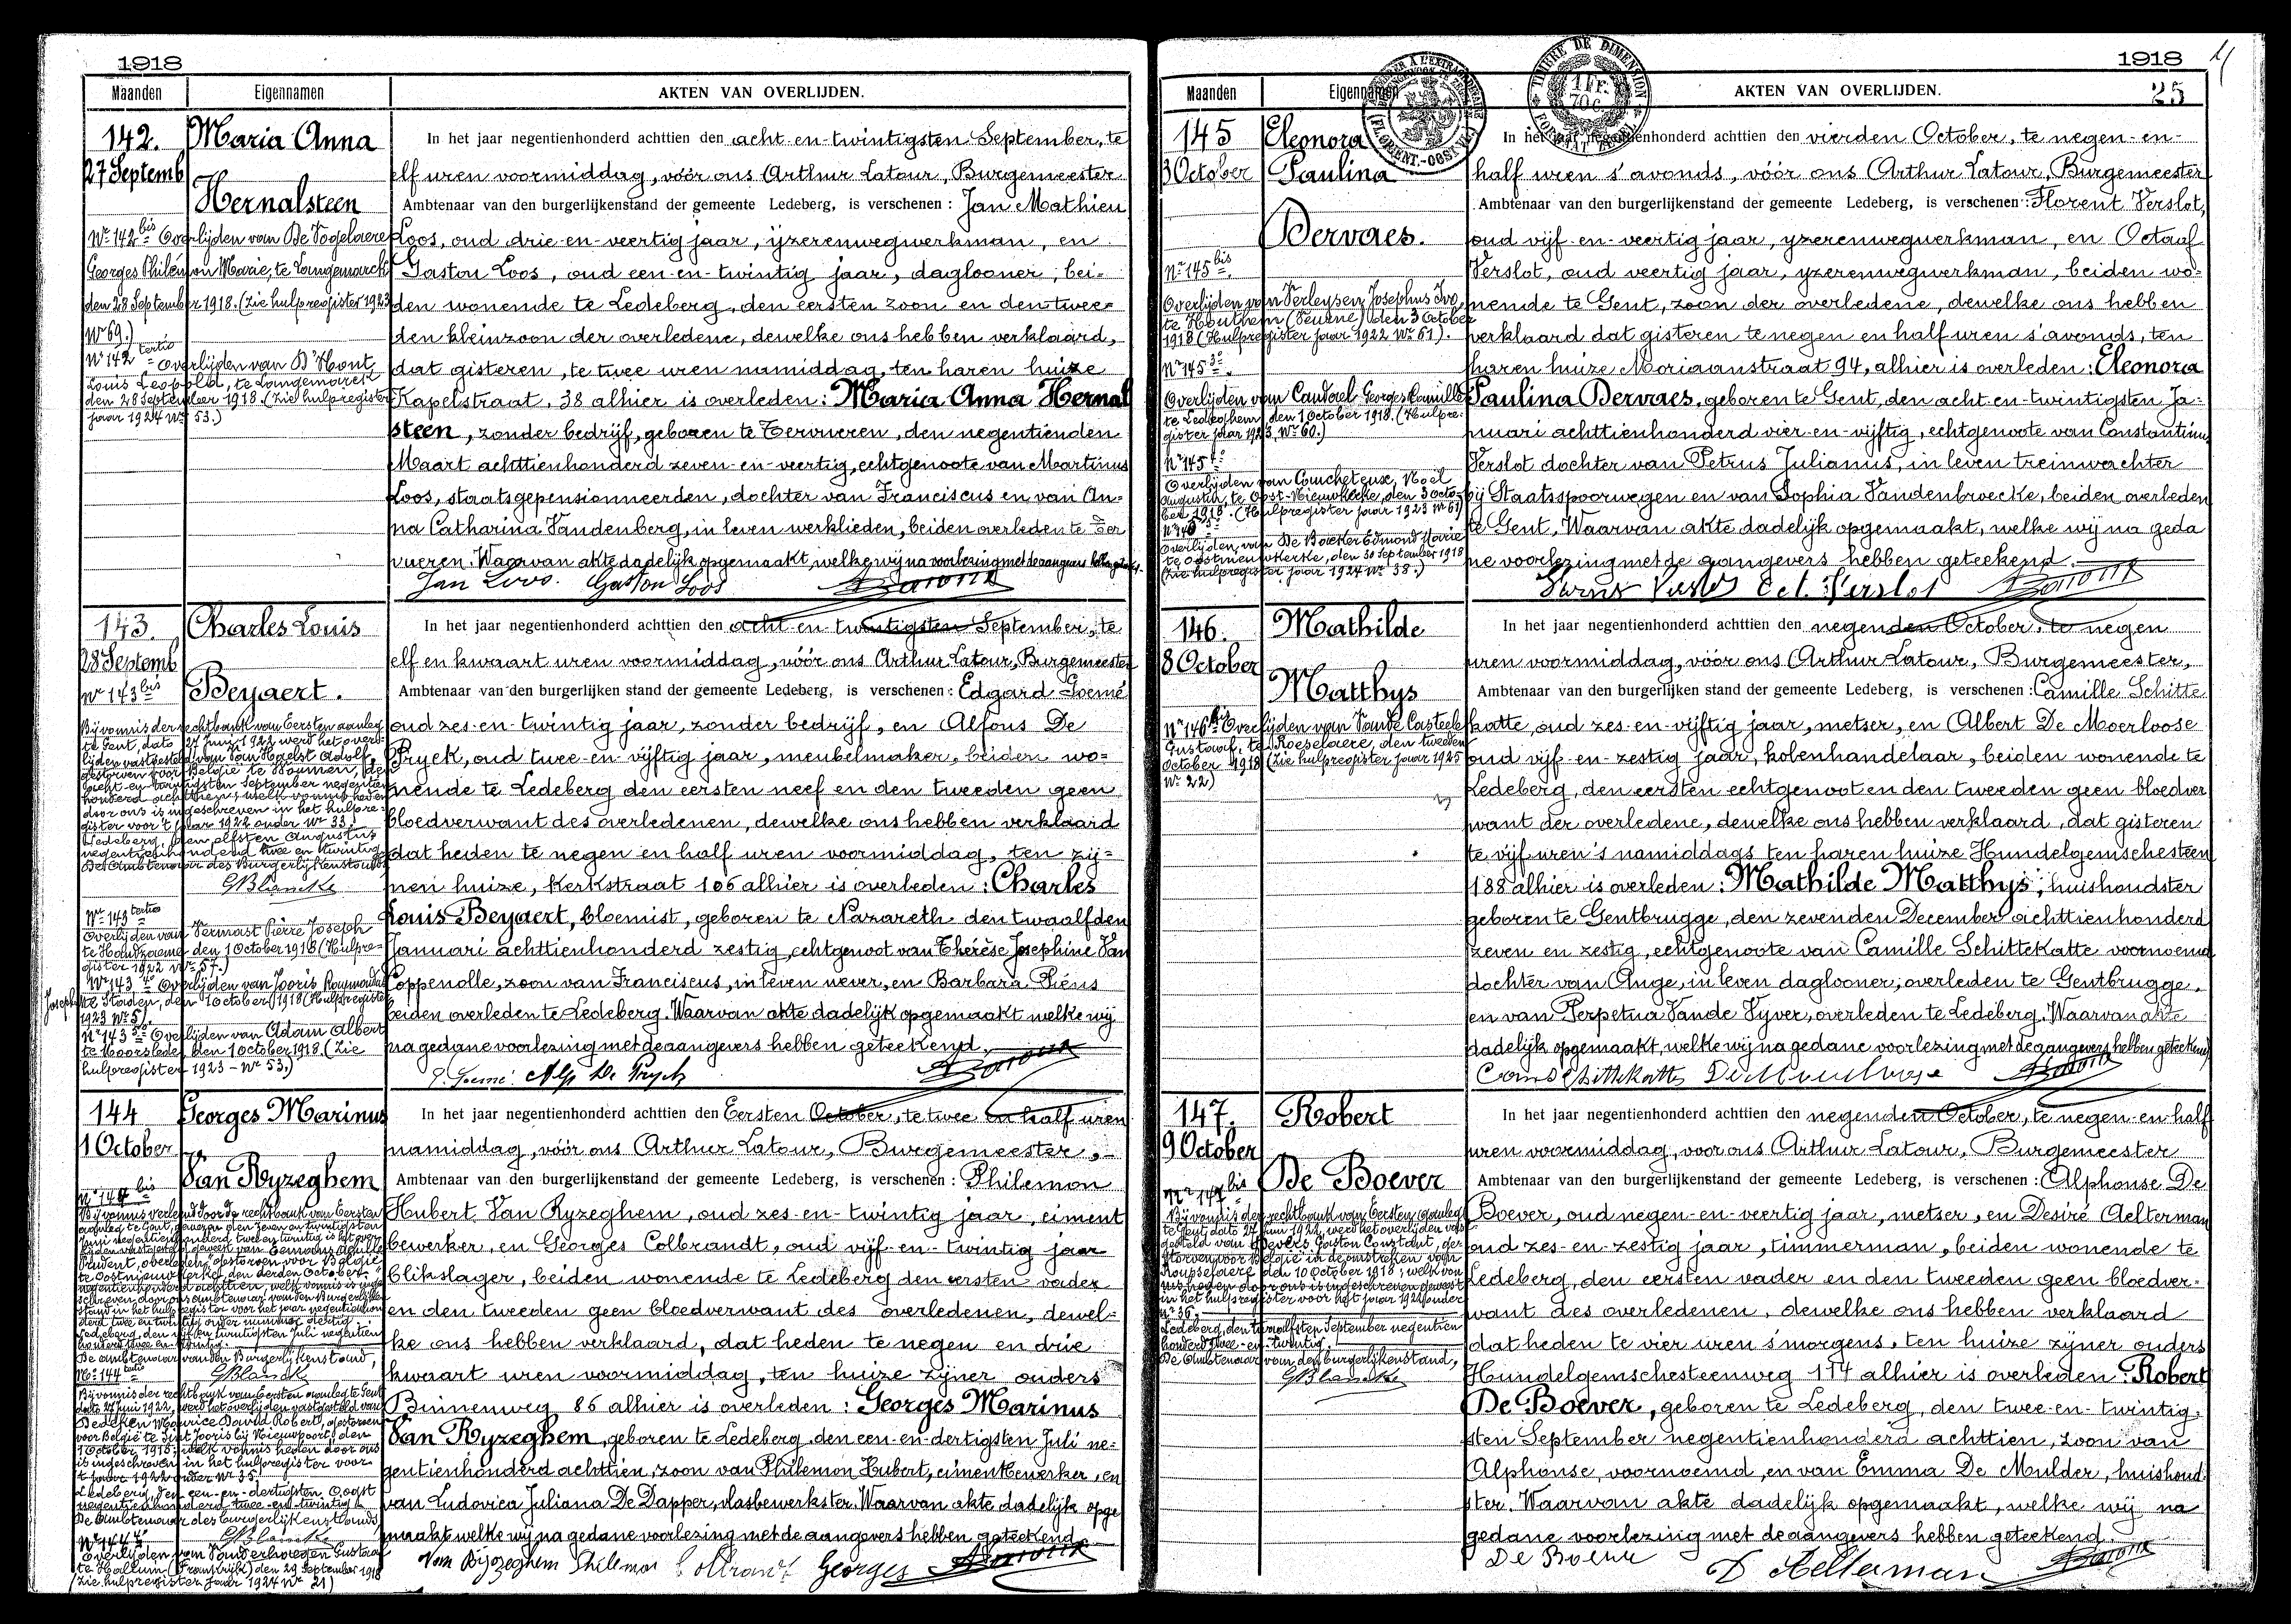 1918
Maanden Eigennamen AKTEN VAN OVERLIJDEN.
142. Maria Anna
27 Septemb
Hernalsteen
Nr 142 bis Overlijden van De Vogelaere
Georges Philémon Marie, te Langemarck
den 28 September 1918. (Zie hulpregister 1923
Nr 69.)
Nr 142 tertio Overlijden van D'Hont,
Louis Leopold, te Langemarck
den 28 September 1918. (Zie hulpregister
jaar 1924 Nr 53.)
In het jaar negentienhonderd achttien den acht-en-twintigsten September, te
elf uren voormiddag, vóór ons Arthur Latour, Burgemeester
Ambtenaar van den burgerlijkenstand der gemeente Ledeberg, is verschenen: Jan Mathieu
Loos, oud drie-en-veertig jaar, ijzerenwegwerkman, en
Gaston Loos, oud een-en-twintig jaar, daglooner, bei=
den wonende te Ledeberg, den eersten zoon en den twee=
den kleinzoon der overledene, dewelke ons hebben verklaard,
dat gisteren, te twee uren namiddag, ten haren huize
Kapelstraat, 38 alhier is overleden: Maria Anna Hernal
steen, zonder bedrijf, geboren te Tervueren, den negentienden
Maart achttienhonderd zeven-en-veertig, echtgenoote van Martinus
Loos, staatsgepensionneerden, dochter van Franciscus en van An-
na Catharina Vandenberg, in leven werklieden, beiden overleden te Ter
vueren. Waarvan akte dadelijk opgemaakt, welke wij na voorlezing met de aangevers
Jan Loos. Gaston Loos
143. Charles Louis
28 Septemb
Nr 143 bis Beyaert.
Bij vonnis der rechtbank van Eersten aanleg
te Gent, dato 27 Juni 1922 werd het over=
lijden vastgesteld van Van Haelst Adolf,
gestorven voor België te
acht-en-twintigsten September negentien
honderd achttien; welk vonnis heden
door ons is ingeschreven in het hulpre=
gister voor 't jaar 1922 onder Nr 33.
Ledeberg, den elfsten Augustus
negentienhonderd twee en twintig
De Ambtenaar des Burgerlijkenstands
GBlancke
Nr 143 tertio
Overlijden van Vermast Pierre Joseph
te Handzaeme den 1 October 1918 (Hulpre=
gister 1922 Nr 57.)
Nr 143 4° Overlijden van Jooris Raymond
Joseph te Staden, den 1 October 1918 (Hulpregister
1923 Nr 5).
Nr 143 5° Overlijden van Adam Albert
te Moorslede den 1 October 1918. (Zie
hulpregister 1923 - Nr 53.)
In het jaar negentienhonderd achttien den acht-en-twintigsten September, te
elf en kwaart uren voormiddag, vóór ons Arthur Latour, Burgemeester
Ambtenaar van den burgerlijken stand der gemeente Ledeberg, is verschenen: Edgard Goemé
oud zes-en-twintig jaar, zonder bedrijf, en Alfons De
Pryck, oud twee-en-vijftig jaar, meubelmaker, beiden wo=
nende te Ledeberg den eersten neef en den tweeden geen
bloedverwant des overledenen, dewelke ons hebben verklaard
dat heden te negen en half uren voormiddag, ten zij=
nen huize, Kerkstraat 106 alhier is overleden: Charles
Louis Beyaert, bloemist, geboren te Nazareth den twaalfden
Januari achttienhonderd zestig, echtgenoot van Thérèse Josephine Van
Coppenolle, zoon van Franciscus, in leven wever, en Barbara Piéns
beiden overleden te Ledeberg. Waarvan akte dadelijk opgemaakt welke wij
na gedane voorlezing met de aangevers hebben geteekend.
E. Goemé. Alf De Pryck
144 Georges Marinus
1 October
Van Ryzeghem
Nr 144 bis
Bij vonnis verleend door de rechtbank van Eersten
aanleg te Gent,
Nr 144 tertio GBlancke
Bij vonnis der rechtbank van Eersten aanleg te Gent
dato 27 Juni 1922, werd het overlijden vastgesteld van
Bedeken Maurice David Robert, gestorven
voor België te Sint Jooris bij Nieuwpoort den
1 October 1918; welk vonnis heden door ons
is ingeschreven in het hulpregister voor
't jaar 1922 onder Nr 35.
Ledeberg, den een-en-dertigsten Oogst
negentienhonderd twee-en-twintig
De Ambtenaar des burgerlijkenstands
GBlancke
Nr 144 4°
Overlijden van Vanderhaegen Gustaaf
te Halluin (Frankrijk) den 29 September 1918
(Zie hulpregister jaar 1924 Nr 21)
In het jaar negentienhonderd achttien den Eersten October, te twee en half uren
namiddag, vóór ons Arthur Latour, Burgemeester,
Ambtenaar van den burgerlijkenstand der gemeente Ledeberg, is verschenen: Philemon
Hubert Van Ryzeghem, oud zes-en-twintig jaar, ciment
bewerker, en Georges Colbrandt, oud vijf-en-twintig jaar
blikslager, beiden wonende te Ledeberg den eersten vader
en den tweeden geen bloedverwant des overledenen, dewel-
ke ons hebben verklaard, dat heden te negen en drie
kwaart uren voormiddag, ten huize zijner ouders
Binnenweg 86 alhier is overleden: Georges Marinus
Van Ryzeghem, geboren te Ledeberg den een-en-dertigsten Juli ne-
gentienhonderd achttien, zoon van Philemon Hubert, cimentbewerker, en
van Ludovica Juliana De Dapper, vlasbewerkster. Waarvan akte dadelijk opge
maakt welke wij na gedane voorlezing met de aangevers hebben geteekend
Van Ryzeghem Philemon Colbrandt Georges
1918
25
Maanden Eigennamen AKTEN VAN OVERLIJDEN.
TIMBRE DE DIMENSION
1 Fr.
70 c.
145 Eleonora
3 October Paulina
Dervaes.
Nr 145 bis
Overlijden van Verleysen Josephus Ivo,
te Houthem (Veurne) den 3 October
1918 (Hulpregister jaar 1922 Nr 61).
Nr 145 3°
Overlijden van Caudael Georges Camille
te Ledeghem, den 1 October 1918. (Hulpre-
gister jaar 1923, Nr 60.)
Nr 145 4°
Overlijden van Coucheteux, Noël
Augustin, te Oost-Nieuwkerke, den 3 Octo-
ber 1918. (Hulpregister jaar 1923 Nr 61)
Nr 145 5°
Overlijden van De Backer Edmond Marie
te Oostnieuwkerke, den 30 September 1918
(Zie hulpregister jaar 1924 Nr 38.)
In het jaar negentienhonderd achttien den vierden October, te negen-en-
half uren s'avonds, vóór ons Arthur Latour, Burgemeester
Ambtenaar van den burgerlijkenstand der gemeente Ledeberg, is verschenen: Florent Verslot,
oud vijf-en-veertig jaar, yzerenwegwerkman, en Octaaf
Verslot, oud veertig jaar, yzerenwegwerkman, beiden wo=
nende te Gent, zoon der overledene, dewelke ons hebben
verklaard dat gisteren te negen en half uren s'avonds, ten
haren huize Moriaanstraat 94, alhier is overleden: Eleonora
Paulina Dervaes, geboren te Gent, den acht-en-twintigsten Ja-
nuari achttienhonderd vier-en-vijftig, echtgenoote van Constantinus
Verslot dochter van Petrus Julianus, in leven treinwachter
bij Staatsspoorwegen en van Sophia Vandenbroecke, beiden overleden
te Gent. Waarvan akte dadelijk opgemaakt, welke wij na geda
ne voorlezing met de aangevers hebben geteekend.
Oct. Verslot
146. Mathilde
8 October
Matthys
Nr 146 bis Overlijden van Vande Casteele
Gustaaf, te Roeselaere, den tweeden
October 1918 (Zie hulpregister jaar 1925
Nr 22)
In het jaar negentienhonderd achttien den negenden October, te negen
uren voormiddag, vóór ons Arthur Latour, Burgemeester,
Ambtenaar van den burgerlijken stand der gemeente Ledeberg, is verschenen: Camille Schitte
katte, oud zes-en-vijftig jaar, metser, en Albert De Moerloose
oud vijf-en-zestig jaar, kolenhandelaar, beiden wonende te
Ledeberg, den eersten echtgenoot en den tweeden geen bloedver
want der overledene, dewelke ons hebben verklaard, dat gisteren
te vijf uren 's namiddags ten haren huize Hundelgemschesteen
188 alhier is overleden: Mathilde Matthys, huishoudster
geboren te Gentbrugge, den zevenden December achttienhonderd
zeven en zestig, echtgenoote van Camille Schittekatte voornoemd
dochter van Ange, in leven daglooner, overleden te Gentbrugge,
en van Perpetua Vande Vyver, overleden te Ledeberg. Waarvan akte
dadelijk opgemaakt, welke wij na gedane voorlezing met de aangevers hebben geteekend
147. Robert
9 October
De Boever
Nr 147 bis
Bij vonnis der rechtbank van Eersten aanleg
te Gent, dato 27 Juni 1922, werd het overlijden vast
gesteld van Gevers Gaston Constant, ge-
storven voor België in de omstreken van
den 10 October 1918; welk von
nis heden door ons is ingeschreven geweest
in het hulpregister voor het jaar 1922 onder
Nr 36.
Ledeberg, den twaalfsten September negentien
honderd twee-en-twintig.
De Ambtenaar van den burgerlijkenstand,
GBlancke
In het jaar negentienhonderd achttien den negenden October, te negen-en-half
uren voormiddag, voor ons Arthur Latour, Burgemeester
Ambtenaar van den burgerlijkenstand der gemeente Ledeberg, is verschenen: Alphonse De
Boever, oud negen-en-veertig jaar, metser, en Desiré Aelterman
oud zes-en-zestig jaar, timmerman, beiden wonende te
Ledeberg, den eersten vader en den tweeden geen bloedver-
want des overledenen, dewelke ons hebben verklaard
dat heden te vier uren s'morgens, ten huize zijner ouders
Hundelgemschesteenweg 114 alhier is overleden: Robert
De Boever, geboren te Ledeberg, den twee-en-twintig-
sten September negentienhonderd achttien, zoon van
Alphonse, voornoemd, en van Emma De Mulder, huishoud-
ster. Waarvan akte dadelijk opgemaakt, welke wij na
gedane voorlezing met de aangevers hebben geteekend.
De Boever D Aelterman